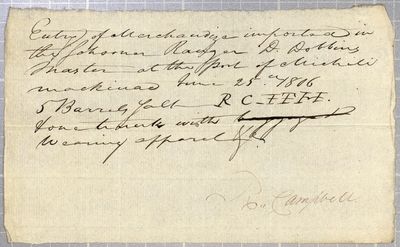 Entry of Merchandize imported in
the Schooner Ranger D. Dobbins
Master at the Port of Michili
mackinac June 25th 1806
5 Barrels Salt R C
&one trunk with
Wearing apparel &c.
Campbell.